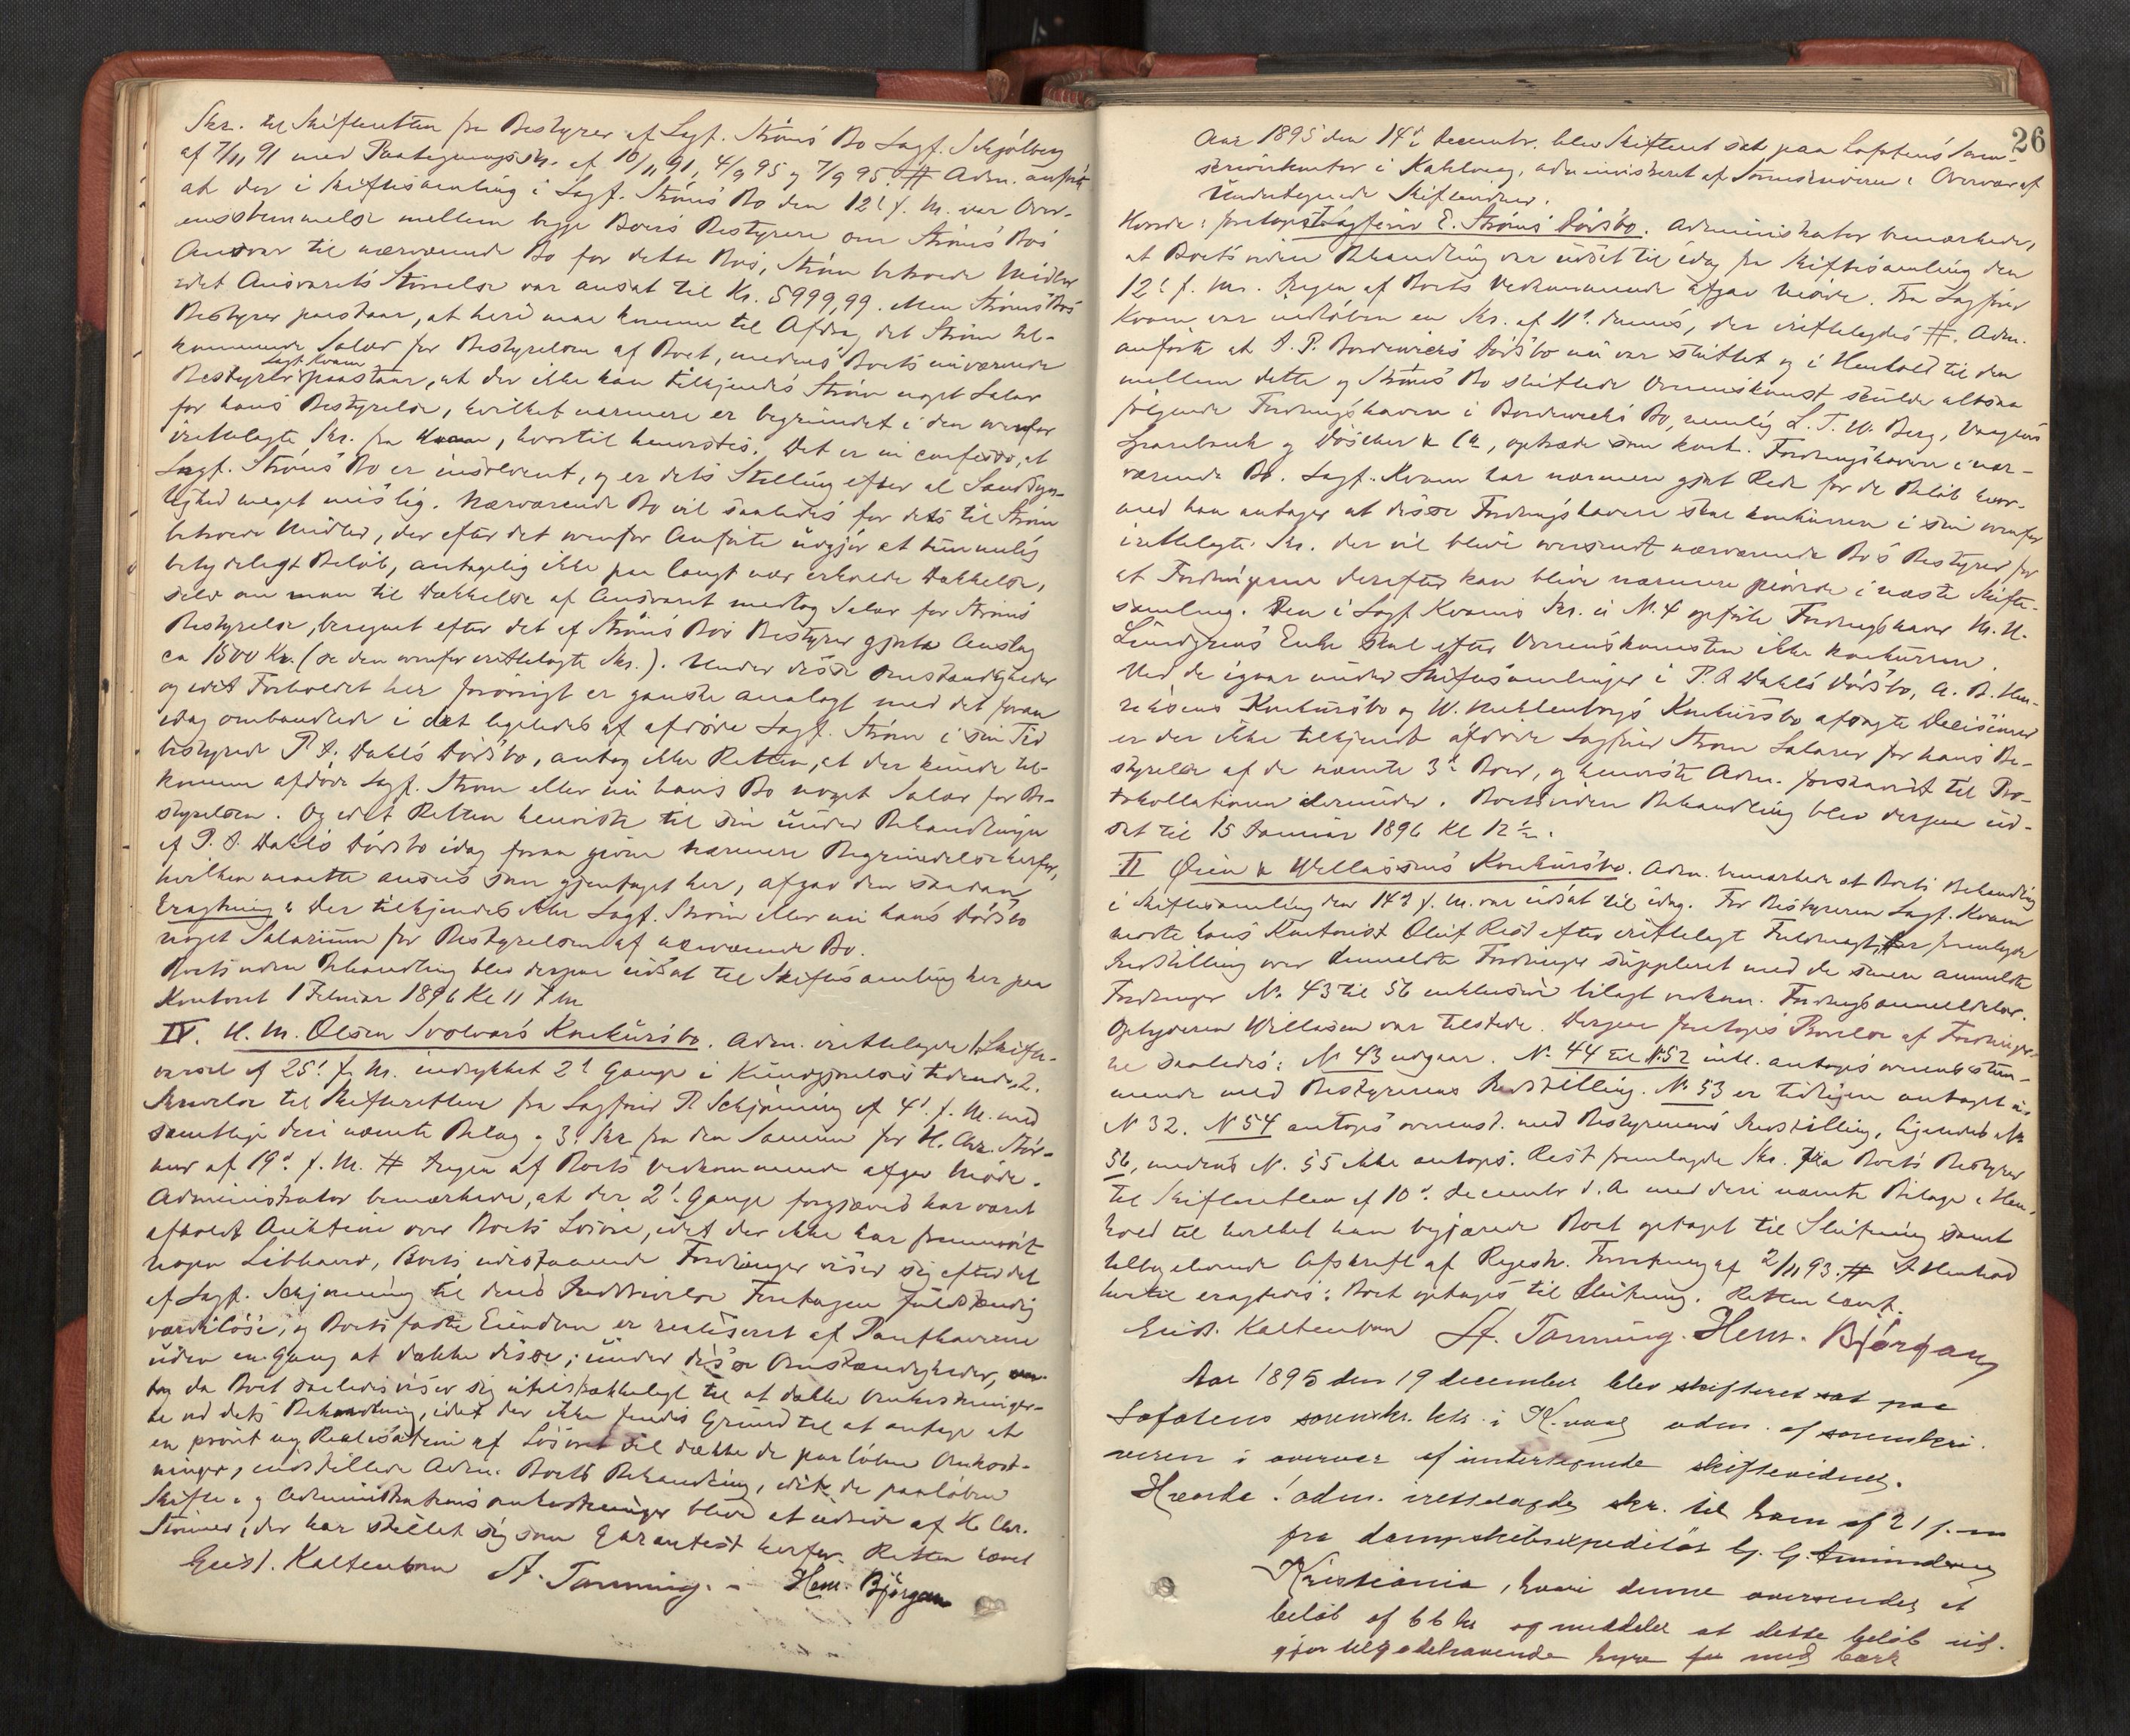 Skr. til Skifteretten fra Bestyrer af Sagf. Ströms Bo Sagf. Schjölberg
af 7/11 91 med Paategningsskr. af 10/11 91, 4/9 95 og 7/9 95. # Adm. anförte
at der i Skiftesamling i Sagf. Ströms Bo den 12t f. M. var Over-
ensstemmelse mellem begge Boers Bestyrere om Ströms Bos
Ansvar til nærværende Bo for dette Bos, Ström betroede Midler
idet Ansvarets Störrelse var ansat til Kr. 5999,99. Men Ströms Bos
Bestyrer paastaar, at heri maa komme til Afdrag det Ström til-
kommende Salær for Bestyrelsen af Boet, medens Boets nuværende
Bestyrer Sagf. Kvam paastaar, at der ikke kan tilkjendes Ström noget Salær
for hans Bestyrelse, hvilket nærmere er begrundet i den ovenfor
irettelagte Skr. fra Kvam, hvortil henvistes. Det er in confesso, at
Sagf. Ströms Bo er insolvent, og er dets Stilling efter al Sandsyn-
lighed meget mislig. Nærværende Bo vil saaledes for dets til Ström
betroede Midler, der efter det ovenfor Anförte udgjör et temmelig
betydeligt Belöb, antagelig ikke paa langt nær erholde Dækkelse,
selv om man til Dækkelse af Ansvaret medtog Salær for Ströms
Bestyrelse, beregnet efter det af Ströms Bos Bestyrer gjorte Anslag
ca 1500 Kr. (se den ovenfor irettelagte Skr.). Under disse Omstændigheder
og idet Forholdet her forövrigt er ganske analogt med det foran
idag ombandlede i det ligeledes af afdöde Sagf. Ström i sin Tid
bestyrede P. A. Dahls Dödsbo, antog ikke Retten, at der kunde til-
komme afdöde Sagf. Ström eller nu hans Bo noget Salær for Be-
styrelsen. Og idet Retten henviste til sin under Behandlingen
af P. A. Dahls Dödsbo idag foran givne nærmere Begrundelse herfor,
hvilken maatte ansees som gjentaget her, afgav den saadan
Eragtning: Der tilkjendes ikke Sagf. Ström eller nu hans Dödsbo
noget Salarium for Bestyrelsen af nærværende Bo.
Boets videre Behandling blev derpaa udsat til Skiftesamling her paa
Kontoret 1 Februar 1896 Kl 11 Fm
IV. H. M. Olsen Svolværs Konkursbo. Adm. irettelagde 1. Skifte-
varsel af 25t f. M. indrykket 2t Gange i Kundgjörelsestidende, 2.
Skrivelse til Skifteretten fra Sagförer P. Schjönning af 4t f. M. med
samtlige deri nævnte Bilag og 3. Skr fra den Samme for H. Chr. Stör-
mer af 19d f. M. # Ingen af Boets Vedkommende afgav Möde.
Administrator bemærkede, at der 2t Gange forgjæves har været
afholdt Auktion over Boets Lösöre, idet der ikke har fremmödt
nogen Liebhaver, Boets udestaaende Fordringer viser sig efter det
af Sagf. Schjönning til deres Inddrivelse Foretagne fuldstændig
værdilöse, og Boets faste Eiendom er realiseret af Panthaverne
uden engang at dække disse; under disse Omstændigheder,
og da Boet saaledes viser sig utilstrækkeligt til at dække Omkostninger-
ne ved dets Behandling, idet der ikke findes Grund til at antage at
en privat ny Realisation af Lösöret vil dække de paalöbne Omkost-
ninger, indstillede Adm. Boets Behandling, idet de paalöbne
Skifte- og Administrations omkostninger bliver at udrede af H. Chr.
Störmer, der har stillet sig som Garantist herfor. Retten hævet
Geist. Kaltenborn A. Tanning. Hem. Björgan
26
Aar 1895 den 14d Decembr. blev Skifteret sat paa Lofotens Soren-
skriverkontor i Kabelvaag, administreret af Sorenskriveren i Overvær af
Undertegnede Skiftevidner.
Hvorda: foretoges I. Sagförer E. Ströms Dödsbo. Administrator bemærkede,
at Boets videre Behandling var udsat til idag fra Skiftesamling den
12t f. M. Ingen af Boets Vedkommende afgav Möde. Fra Sagförer
Kvam var indlöben en Skr. af 11t dennes, der irettelagdes #. Adm.
anförte at J. P. Bordewicks Dödsbo nu var sluttet og i Henhold til den
mellem dette og Ströms Bo sluttede Overenskomst skulde altsaa
fölgende Fordringshavere i Bordewicks Bo, nemlig L. T. W. Berg, Vaagens
Sparebank og Döscher & Co, optræde som konk. Fordringshavere i nær-
værende Bo. Sagf. Kvam har nærmere gjort Rede for de Belöb hvor-
med han antager at disse Fordringshavere skal konkurrere i sin ovenfor
irettelagte Skr. der vil blive oversendt nærværende Bo's Bestyrer for
at Fordringerne derefter kan blive nærmere prövede i næste Skifte-
samling. Den i Sagf. Kvams Skr. u. N. 4 opförte Fordringshaver M. U.
Lundgrens Enke skal efter Overenskomsten ikke konkurrere.
Ved de igaar under Skiftesamlinger i P. A Dahls Dödsbo, A. B. Hen-
riksens Konkursbo og W. Mehlenborgs Konkursbo afsagte Decisioner
er der ikke tilkjendt afdöde Sagförer Ström Salarer for hans Be-
styrelse af de nævnte 3de Boer, og henviste Adm. forsaavidt til Pro-
tokollationen derunder. Boets videre Behandling blev derpaa ud-
sat til 15 Januar 1896 Kl 12 ½.
II Öien & Willassens Konkursbo. Adm. bemærkede at Boets Behandling
i Skiftesamling den 14d f. M. var udsat til idag. For Bestyreren Sagf. Kvam
mödte hans Kontorist Oluf Rest efter irettelagt Fuldmagt, fremlagde
Indstilling over Anmeldte Fordringer suppleret med de senere anmeldte
Fordringer No 43 til 56 inklusive bilagt vedkom. Fordringsanmeldelser.
Opbyderen Willasen var tilstede. Derpaa foretoges Prövelse af Fordringer-
ne saaledes: No 43 udgaar. No 44 til No 52 inkl. antoges overensstem-
mende med Bestyrerens Indstilling. No 53 er tidligere antaget u.
N 32. N 54 antoges overenst. med Bestyrerens Indstilling, ligeledes No
56, medens No 55 ikke antoges. Rest fremlagde Skr. fra Boets Bestyrer
til Skifteretten af 10d December d. A. med deri nævnte Bilage i Hen-
hold til hvilket han begjærede Boet optaget til Slutning samt
tilbageleverede Afskrift af Regnsk. Forretning af 2/11 93. # I Henhold
hertil eragtedes: Boet optages til Slutning. Retten hævt.
Geist. Kaltenborn A. Tanning. Hem. Björgan
Aar 1895 den 19 december blev skifteret sat paa
Lofotens sorenskr. ktr. i K.vaag adm. af sorenskri-
veren i overvær af undertegnede skiftevidner.
Hvorda: adm. irettelagdes skr. til ham af 21 f. m
fra dampskibsexpeditör G. G. Amundsen
Kristiania, hvori denne oversendes et
belöb af 66 kr og meddeler at dette belöb ud-
gjør tilgodehavende hyre med bark